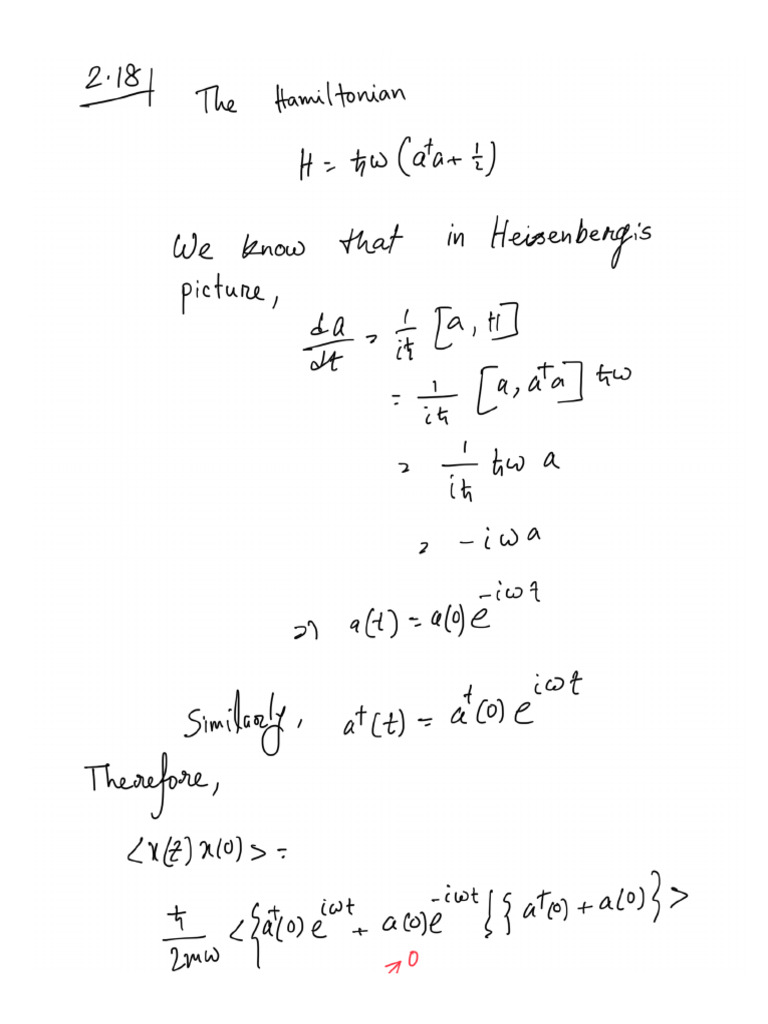 2.18| The Hamiltonian
H = ħω (a†a + 1/2)
We know that in Heisenberg's
picture,
da/dt = 1/iħ [a, H]
= 1/iħ [a, a†a] ħω
= 1/iħ ħω a
= -iωa
⇒ a(t) = a(0)e^{-iωt}
Similarly, a†(t) = a†(0) e^{iωt}
Therefore,
<x(t) x(0)> =
ħ/2mω <{a†(0) e^{iωt} + a(0)e^{-iωt}}{a†(0) + a(0)}>
↗0